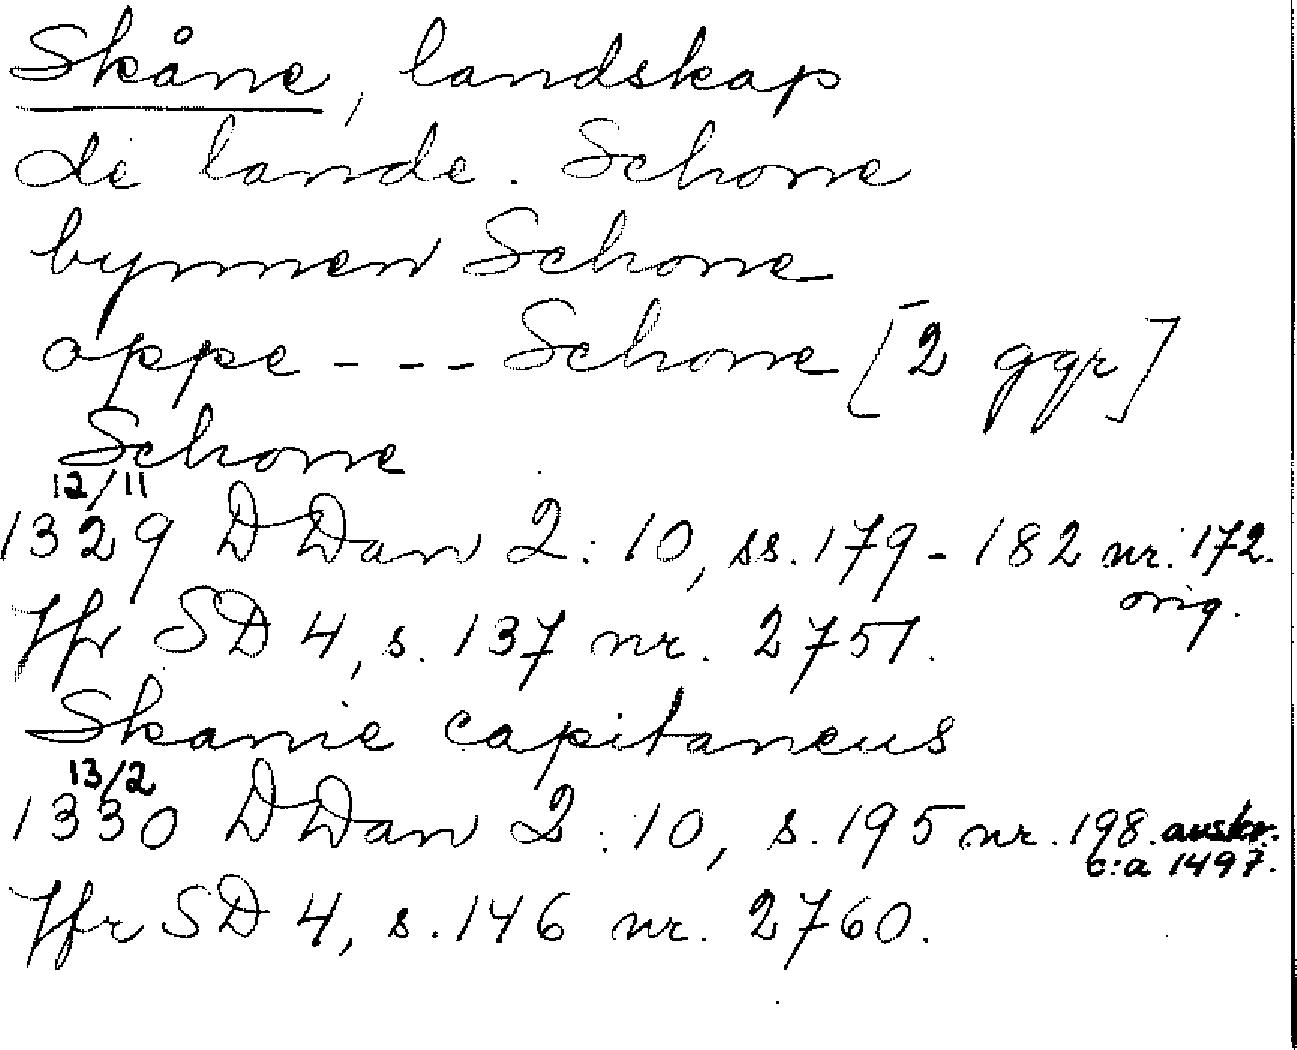 Skåne, landskap
di lande. Schone
bynnen Schone
oppe - - - Schone [2 ggr]
Schone
12/11
1329 DDan 2:10, ss. 179-182 nr. 172.
orig.
Jfr SD 4, s. 137 nr. 2751.
Skanie capitaneus
13/2
1330 DDan 2:10, s. 195 nr. 198. avskr.
c:a 1497.
Jfr SD 4, s. 146 nr. 2760.